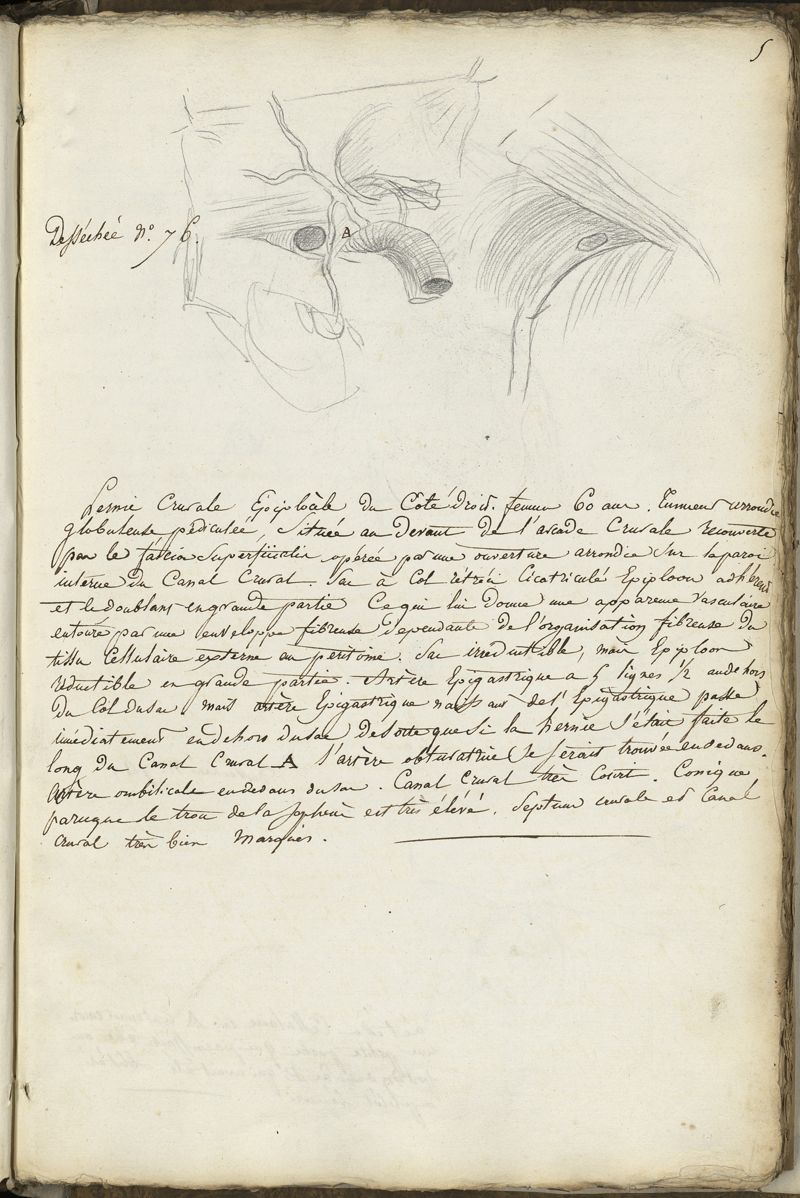 5
Desséchée N.º 76.
A
Hernie Crurale Epiploïcale du Côté droit. femme 60 ans. Tumeur arrondie
globuleuse pédiculée, Située au Devant de l'arcade Crurale recouverte
par le fascia Superficialis opérée par une ouverture arrondie Sur la paroi
interne du Canal Crural. Sac à Col rétréci Cicatriculé Epiploon adhérent
et le doublant en grande partie Ce qui lui Donne une apparence Vasculaire
entouré par une enveloppe fibreuse dependante de l'organisation fibreuse du
tissu Cellulaire externe au peritoine. Sac irreductible, mais Epiploon
réductible en grande partie. Artère Epigastrique a 5 lignes ½ en dehors
du Col du Sac. mais artère Epigastrique de l'Epigastrique passe
imédiatement en dehors du sac De sorte que Si la hernie S'était faite le
long du Canal Crural A l'artère obturatrice Se Serait trouvée en dedans.
Artère ombilicale en dedans du sac. Canal Crural très Court. Conique
parceque le trou de la Saphène est très élevé. Septum crurale et Canal
Crural très bien Marqués.